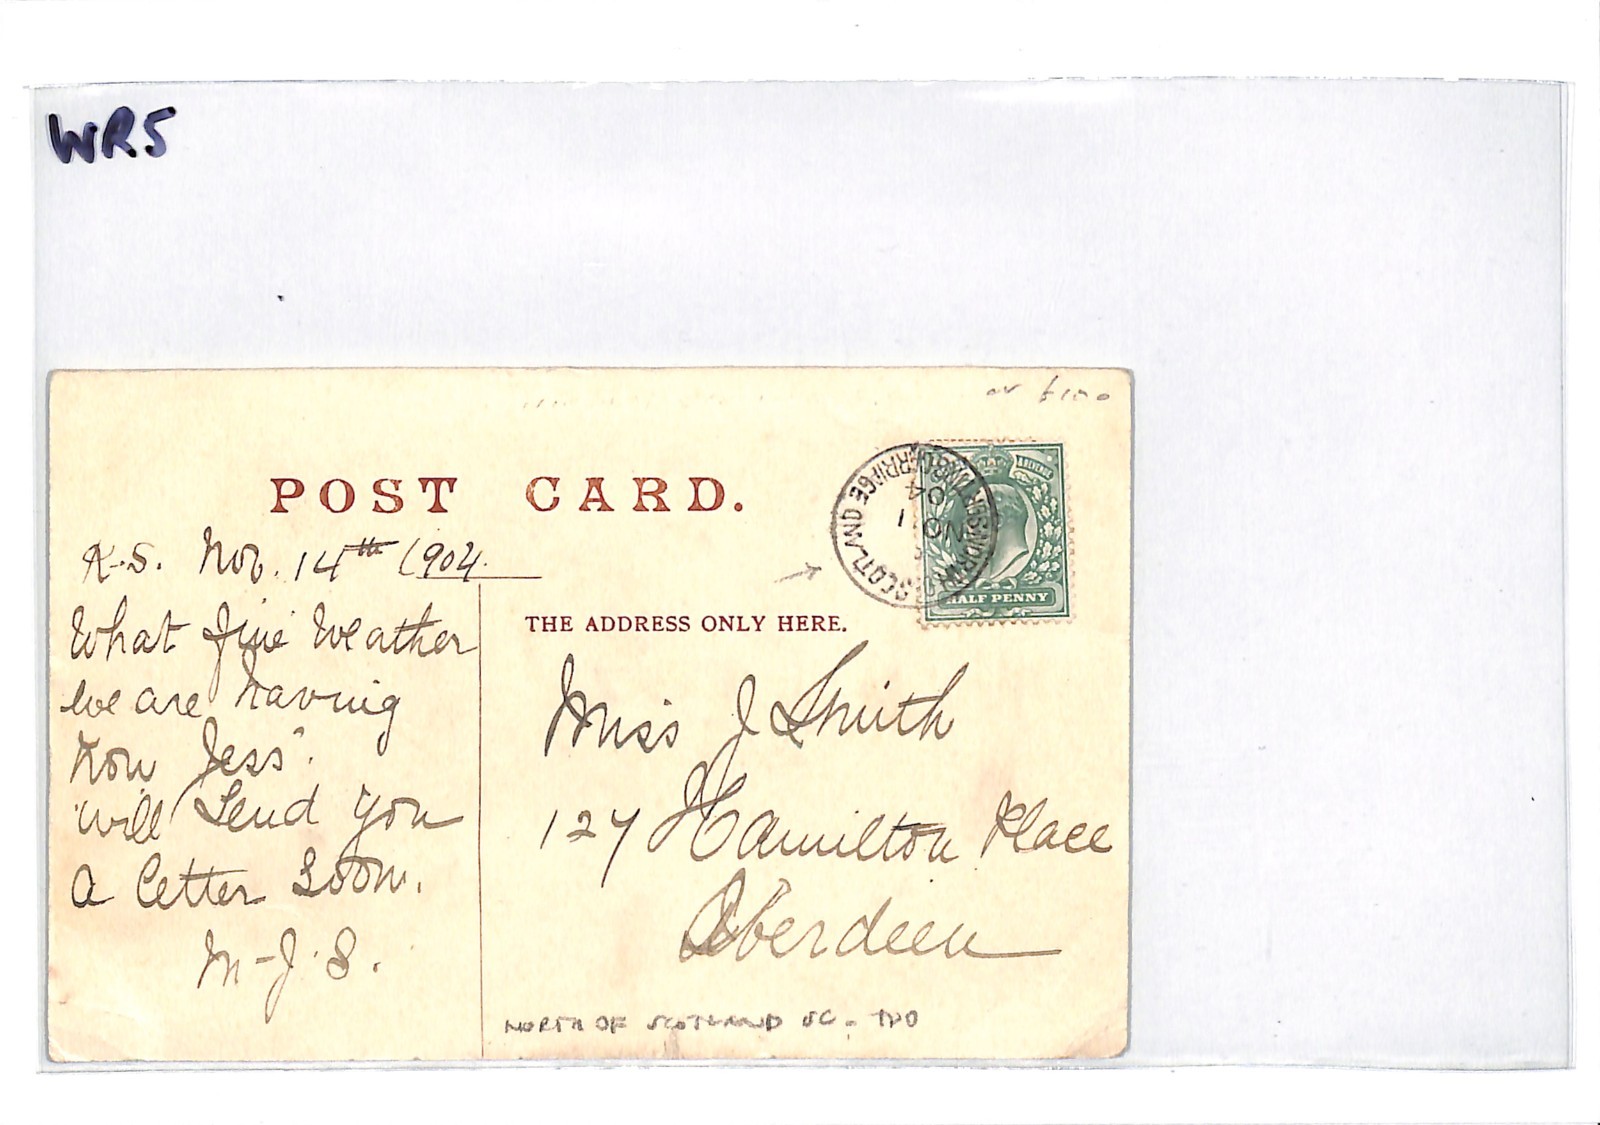 WR5
POST CARD.
K.S. Nov. 14th 1904.
What fine Weather
we are having
now Jess.
will Send you
a letter Soon.
M-J.S.
THE ADDRESS ONLY HERE.
HALF PENNY
SCOTLAND
NO
04
Miss J Smith
127 Hamilton Place
Aberdeen
NORTH OF SCOTLAND SC - TPO